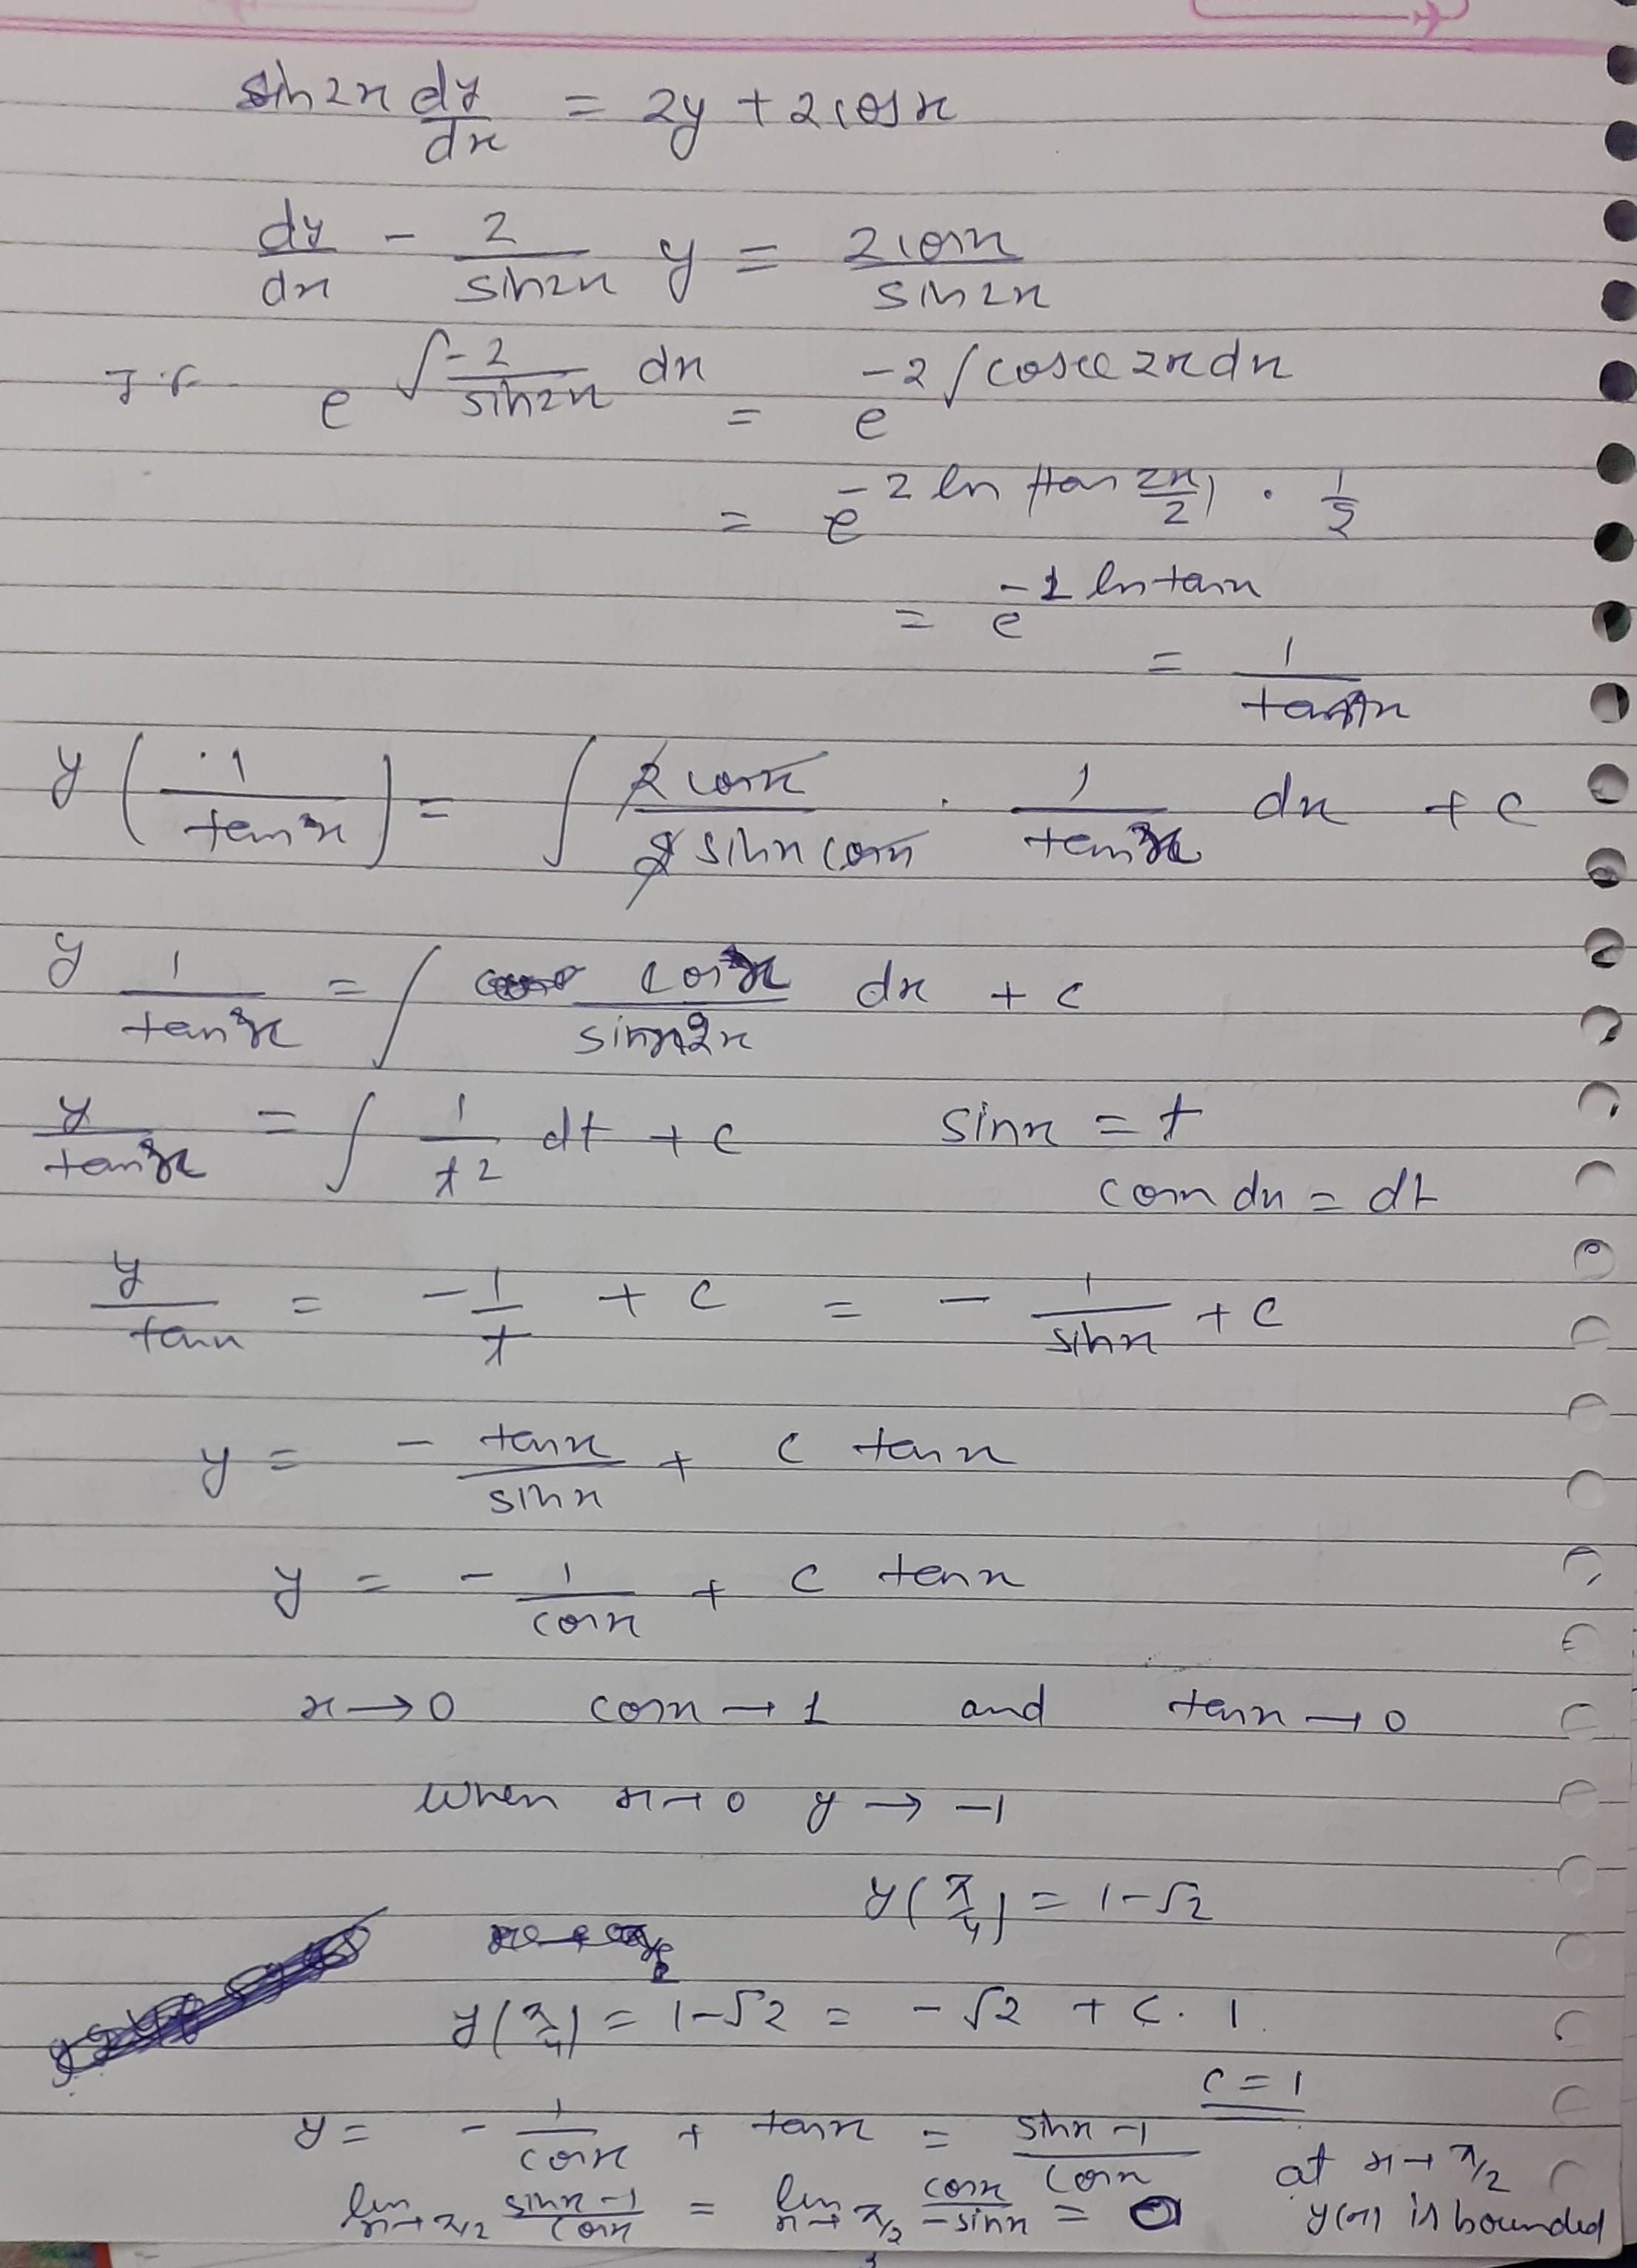 sin2x dy/dx = 2y + 2cosx
dy/dx - 2/sin2x y = 2cosx/sin2x
I.F. e^∫-2/sin2x dx = e^-2∫cosec2xdx
= e^-2 ln|tan 2x/2| · 1/2
= e^-1 ln tanx
= 1/tanx
y (1/tanx) = ∫ 2cosx/2sinxcosx · 1/tanx dx + c
y 1/tanx = ∫ cosx/sin²x dx + c
y/tanx = ∫ 1/t² dt + c sinx = t
cosx dx = dt
y/tanx = -1/t + c = - 1/sinx + c
y = - tanx/sinx + c tanx
y = - 1/cosx + c tanx
x→0 cosx→1 and tanx→0
when x→0 y→-1
y(π/4) = 1-√2
y(π/4) = 1-√2 = -√2 + c. 1
c = 1
y = - 1/cosx + tanx = sinx-1/cosx at x→π/2
lim x→π/2 sinx-1/cosx = lim x→π/2 cosx/-sinx = 0 y(x) is bounded